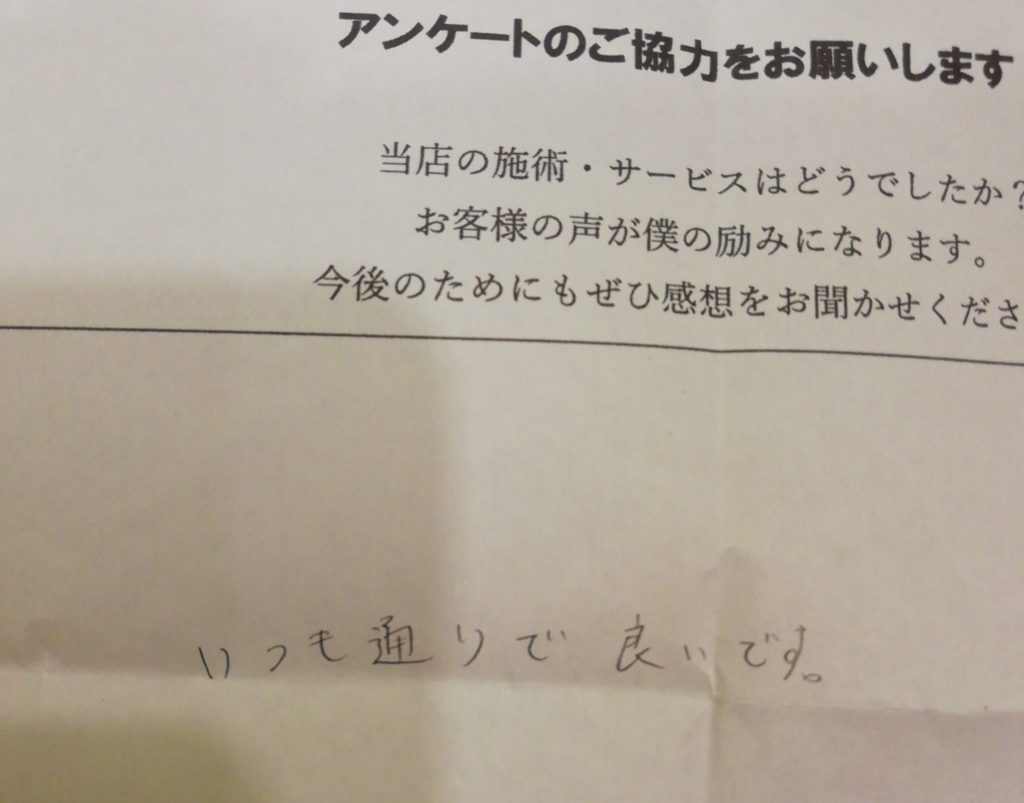 アンケートのご協力をお願いします
当店の施術・サービスはどうでしたか?
お客様の声が僕の励みになります。
今後のためにもぜひ感想をお聞かせくださ
いつも通りで 良いです。